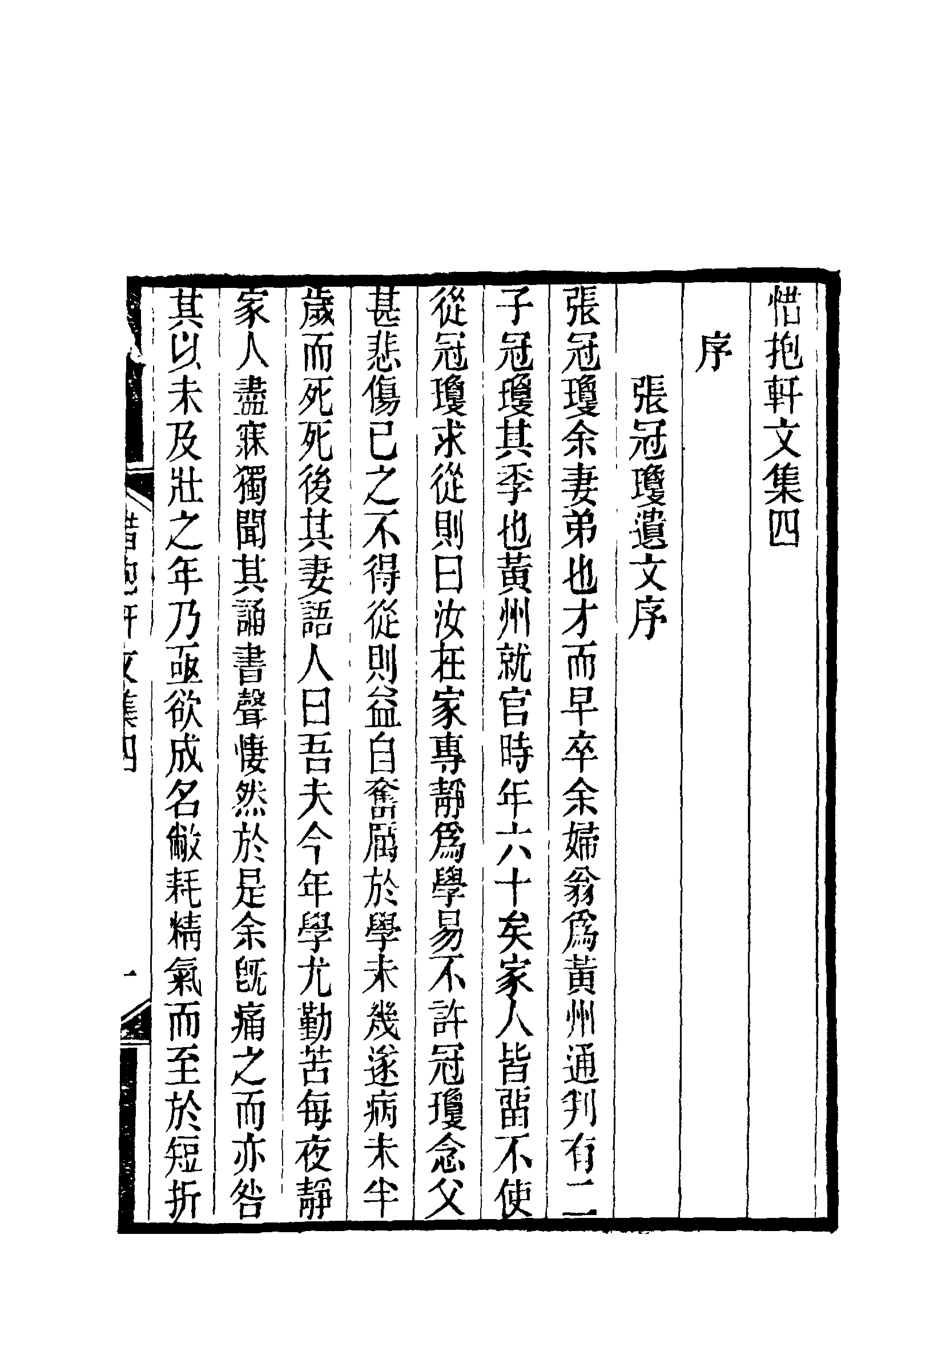 惜抱軒文集四
序
張冠瓊遺文序
張冠瓊余妻弟也才而早卒余婦翁爲黃州通判有二
子冠瓊其季也黃州就官時年六十矣家人皆畱不使
從冠瓊求從則曰汝在家專靜爲學易不許冠瓊念父
甚悲傷已之不得從則益自奮厲於學未幾遂病未半
歲而死死後其妻語人曰吾夫今年學尤勤苦每夜靜
家人盡寐獨聞其誦書聲悽然於是余旣痛之而亦咎
其以未及壯之年乃亟欲成名敝耗精氣而至於短折
惜抱軒文集四
一